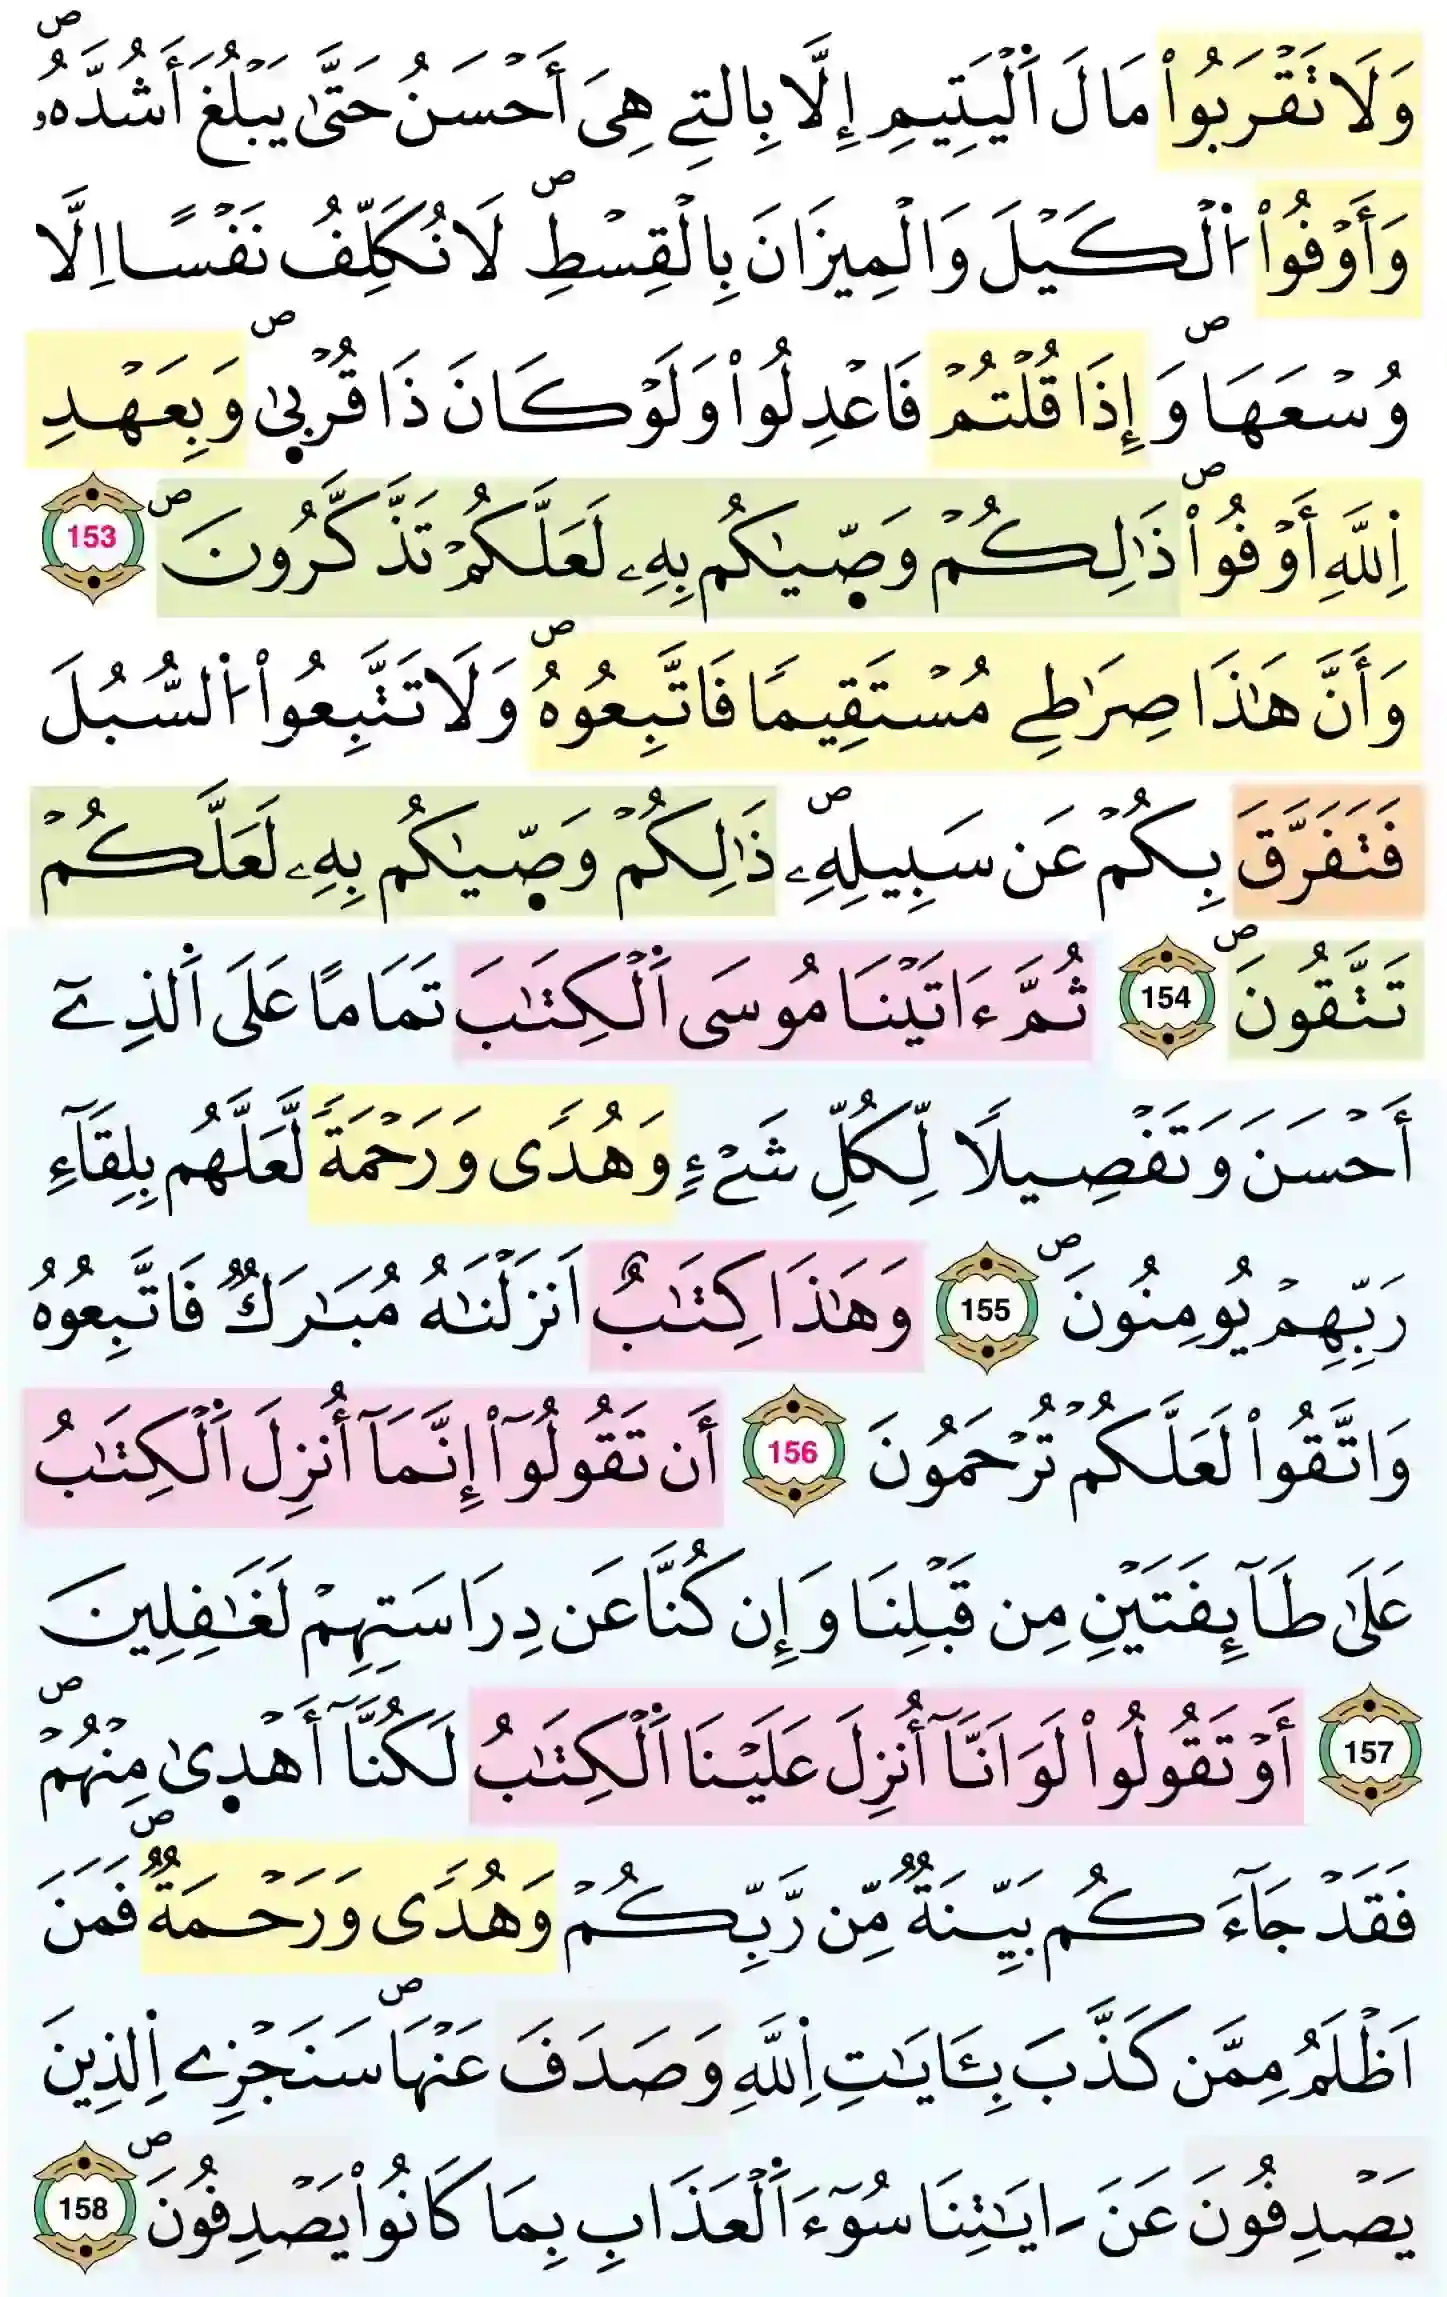 وَلَا تَقْرَبُواْ مَالَ اَ۬لْيَتِيمِ إِلَّا بِالتِے هِيَ أَحْسَنُ حَتَّىٰ يَبْلُغَ أَشُدَّهُۥۖ
وَأَوْفُواْ اُ۬لْكَيْلَ وَالْمِيزَانَ بِالْقِسْطِۖ لَا نُكَلِّفُ نَفْسًا اِلَّا
وُسْعَهَاۖ وَإِذَا قُلْتُمْ فَاعْدِلُواْ وَلَوْ كَانَ ذَا قُرْب۪ىٰۖ وَبِعَهْدِ
اِ۬للَّهِ أَوْفُواْۖ ذَٰلِكُمْ وَصّ۪يٰكُم بِهِۦ لَعَلَّكُمْ تَذَّكَّرُونَۖ 153
وَأَنَّ هَٰذَا صِرَٰطِے مُسْتَقِيمًا فَاتَّبِعُوهُۖ وَلَا تَتَّبِعُواْ اُ۬لسُّبُلَ
فَتَفَرَّقَ بِكُمْ عَن سَبِيلِهِۦۖ ذَٰلِكُمْ وَصّ۪يٰكُم بِهِۦ لَعَلَّكُمْ
تَتَّقُونَۖ 154 ثُمَّ ءَاتَيْنَا مُوسَى اَ۬لْكِتَٰبَ تَمَامًا عَلَى اَ۬لذِےٓ
أَحْسَنَ وَتَفْصِيلًا لِّكُلِّ شَےْءٍ وَهُدًى وَرَحْمَةً لَّعَلَّهُم بِلِقَآءِ
رَبِّهِمْ يُومِنُونَۖ 155 وَهَٰذَا كِتَٰبٌ اَنزَلْنَٰهُ مُبَٰرَكٌ فَاتَّبِعُوهُ
وَاتَّقُواْ لَعَلَّكُمْ تُرْحَمُونَ 156 أَن تَقُولُوٓاْ إِنَّمَآ أُنزِلَ اَ۬لْكِتَٰبُ
عَلَىٰ طَآئِفَتَيْنِ مِن قَبْلِنَا وَإِن كُنَّا عَن دِرَاسَتِهِمْ لَغَٰفِلِينَ
157 أَوْ تَقُولُواْ لَوَ اَنَّآ أُنزِلَ عَلَيْنَا اَ۬لْكِتَٰبُ لَكُنَّآ أَهْد۪ىٰ مِنْهُمْۖ
فَقَدْ جَآءَكُم بَيِّنَةٌ مِّن رَّبِّكُمْ وَهُدًى وَرَحْمَةٌۖ فَمَنَ
اَظْلَمُ مِمَّن كَذَّبَ بِـَٔايَٰتِ اِ۬للَّهِ وَصَدَفَ عَنْهَاۖ سَنَجْزِے اِ۬لذِينَ
يَصْدِفُونَ عَنَ ـ اٰيَٰتِنَا سُوٓءَ اَ۬لْعَذَابِ بِمَا كَانُواْ يَصْدِفُونَۖ 158